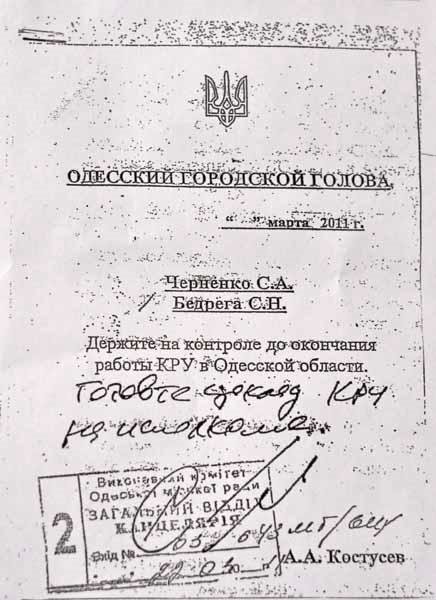 ОДЕССКИЙ ГОРОДСКОЙ ГОЛОВА
“ ” марта 2011 г.
Черненко С.А.
Бедрега С.Н.
Держите на контроле до окончания
работы КРУ в Одесской области.
Готовте доклад КРУ
на исполкоме.
Виконавчий комітет
Одеської міської ради
ЗАГАЛЬНИЙ ВІДДІЛ
КАНЦЕЛЯРІЯ
2
Вхід №
22 03
А.А. Костусев